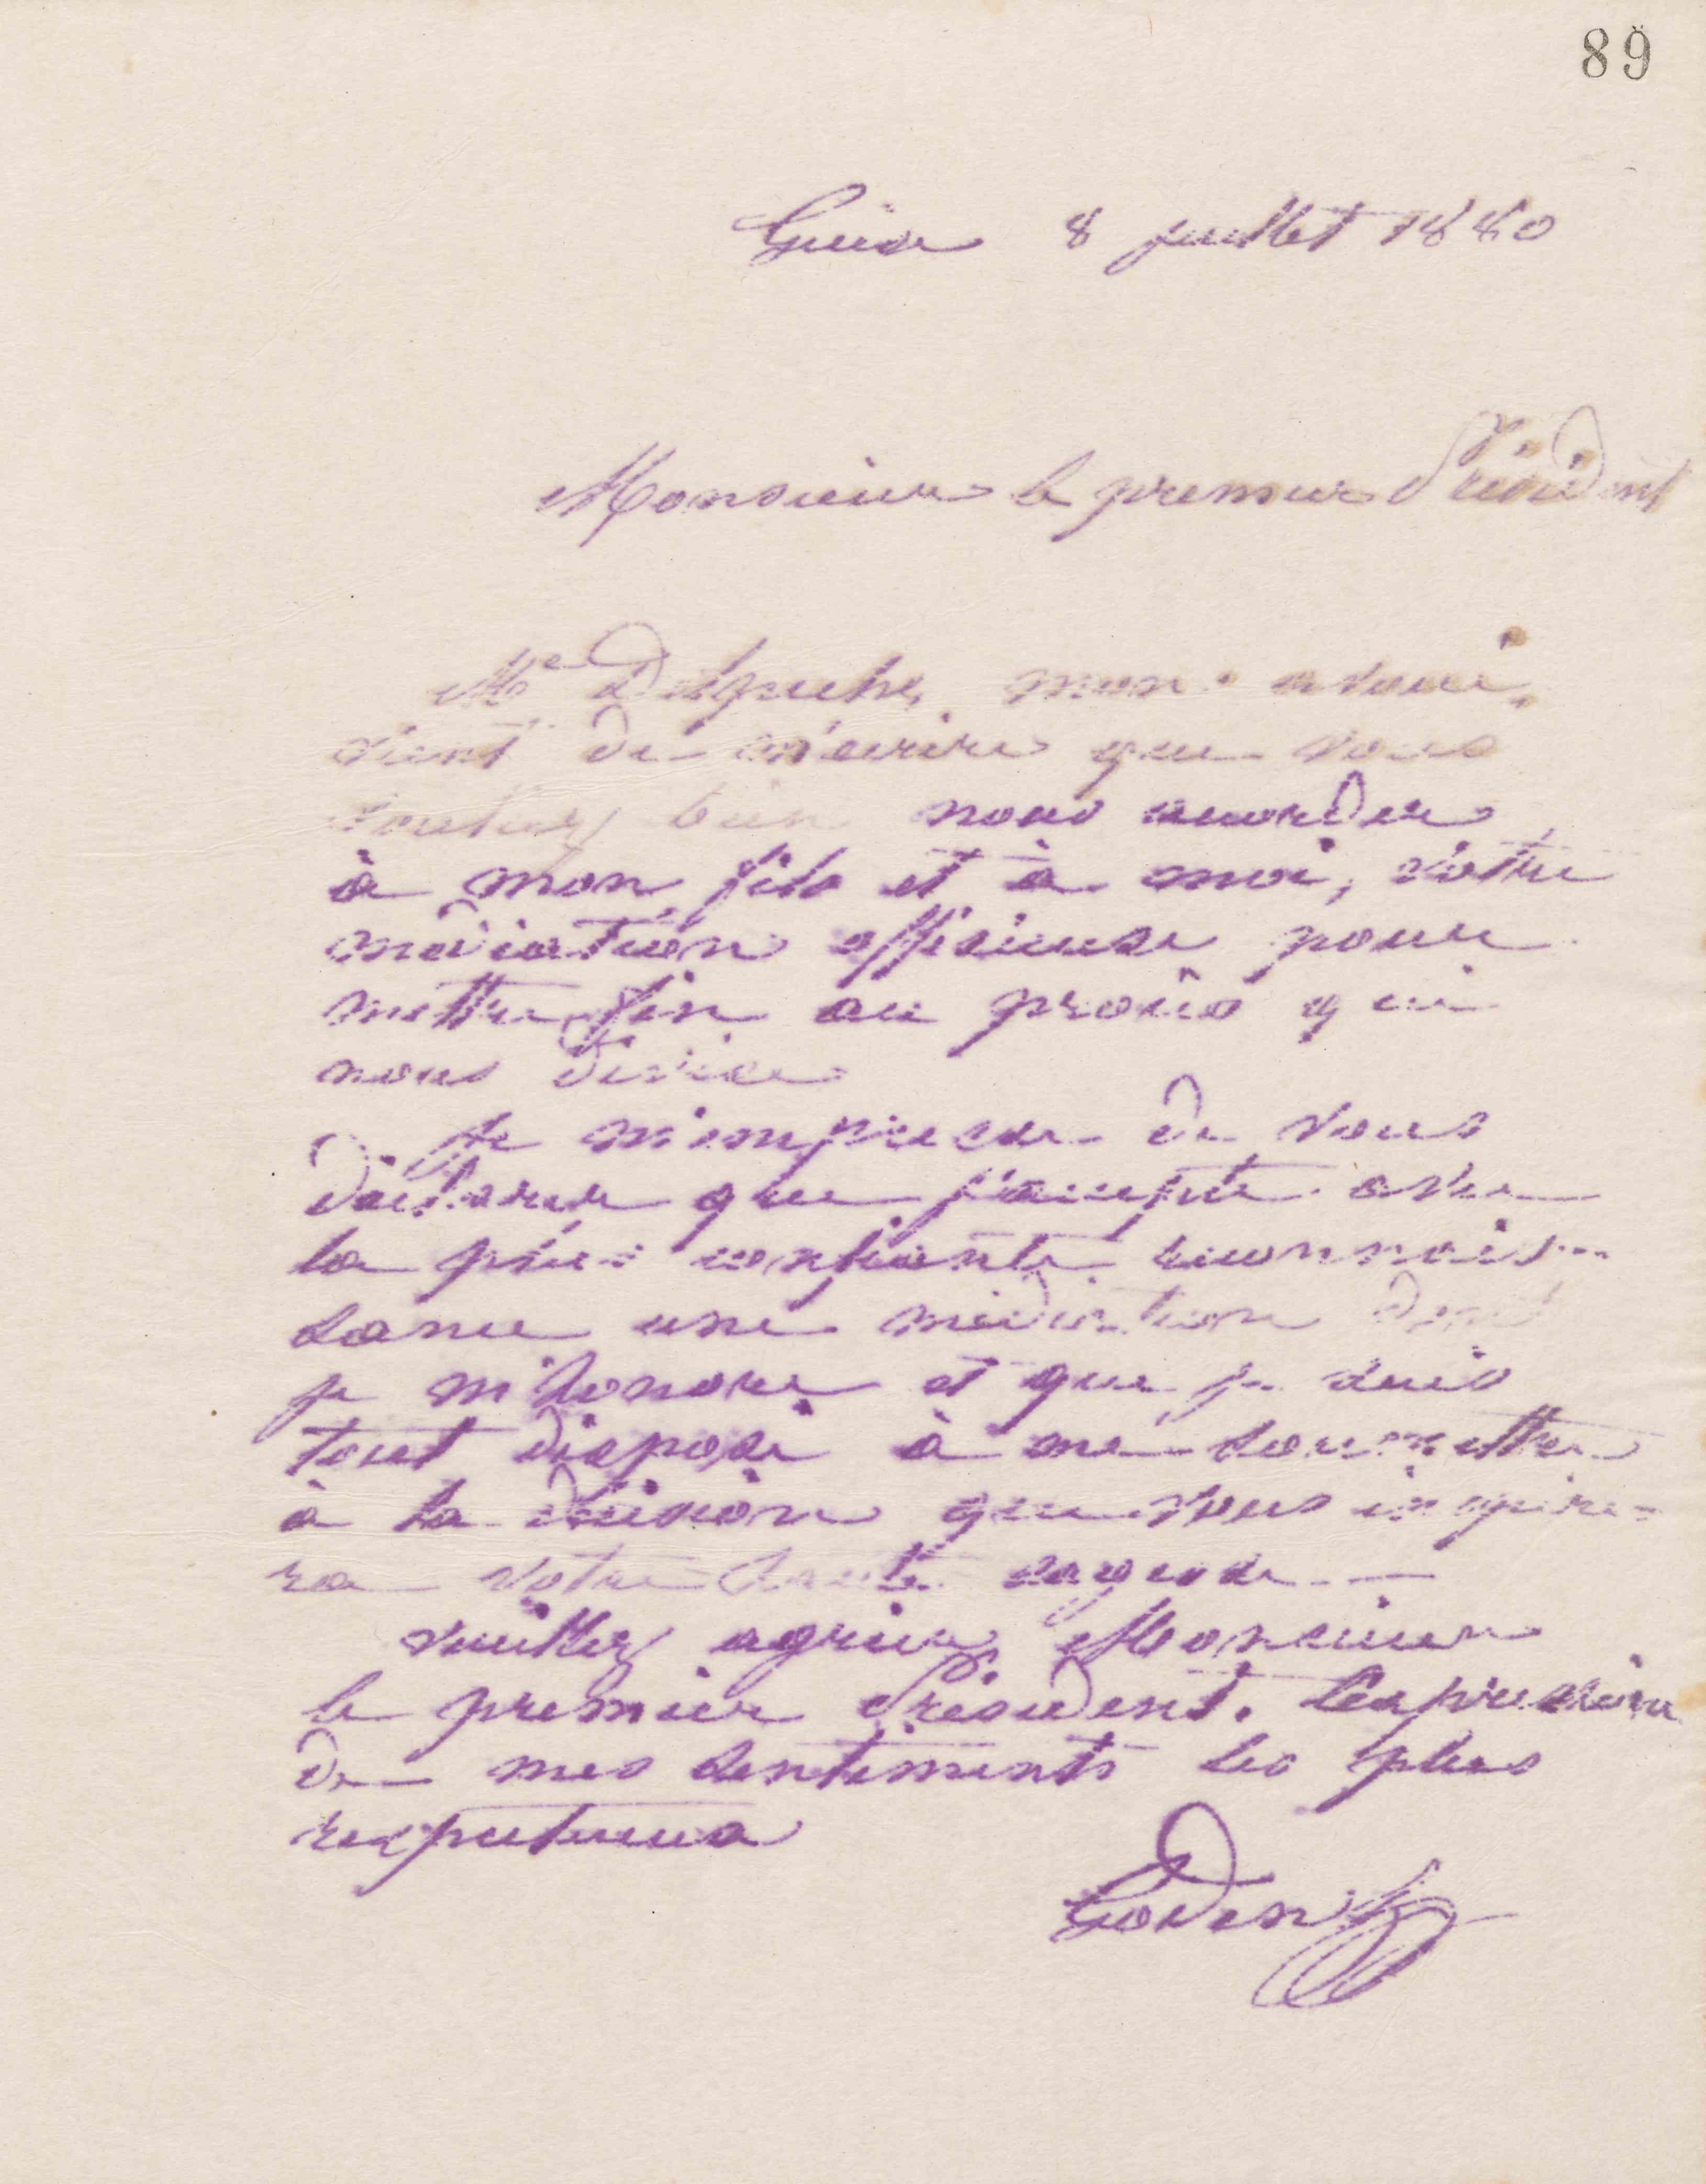 89
Guise 8 juillet 1880
Monsieur le premier Président
Me Delpuche, mon avoué,
vient de m'écrire que vous
voulez bien nous accorder
à mon fils et à moi, votre
médiation officieuse pour
mettre fin au procès qui
nous divise
Je m'empresse de vous
déclarer que j'accepte avec
la plus confiante reconnais-
sance une médiation dont
je m'honore et que je suis
tout disposé à me soumettre
à la décision que vous inspire-
ra votre haute sagesse. —
Veuillez agréer, Monsieur
le premier Président. L'expression
de mes sentiments les plus
respectueux
Godin